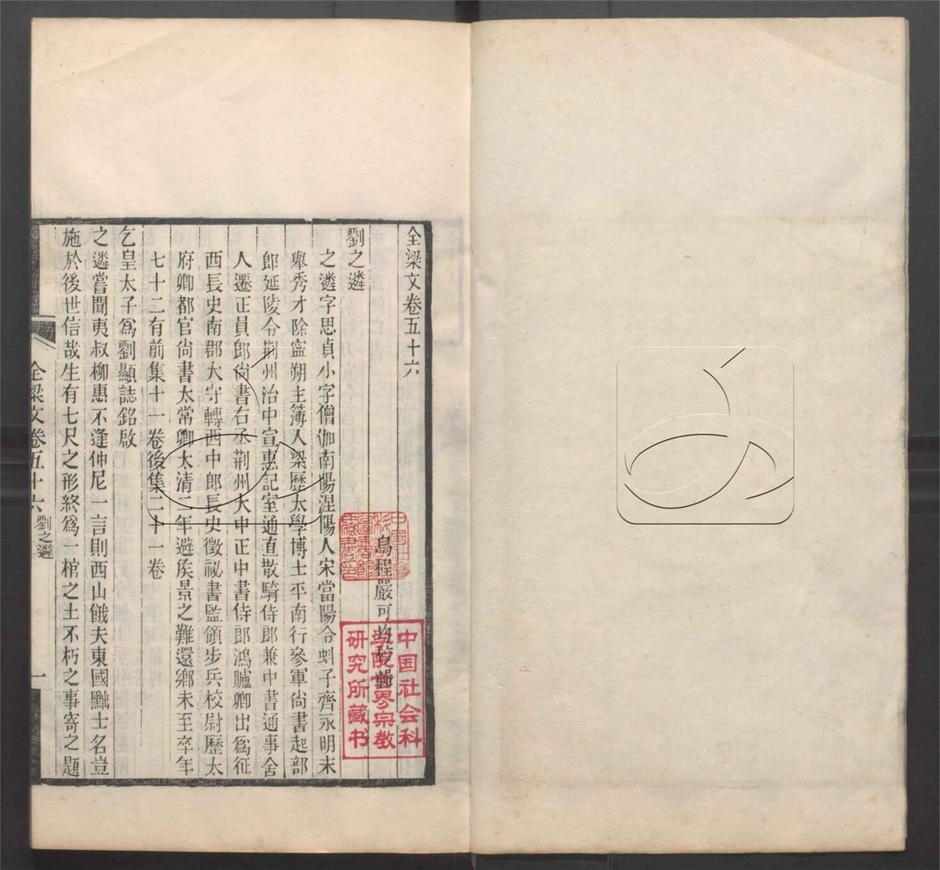 全梁文卷五十六
烏程嚴可均校輯
劉之遴
之遴字思貞小字僧伽南陽涅陽人宋當陽令蚪子齊永明末
舉秀才除寧朔主簿入梁歷太學博士平南行參軍尚書起部
郎延陵令荆州治中宣惠記室通直散騎侍郎兼中書通事舍
人遷正員郎尚書右丞荆州大中正中書侍郎鴻臚卿出爲征
西長史南郡太守轉西中郎長史徵祕書監領步兵校尉歷太
府卿都官尚書太常卿太清二年避矦景之難還鄉未至卒年
七十二有前集十一卷後集二十一卷
乞皇太子爲劉顯誌銘啟
之遴嘗聞夷叔柳惠不逢仲尼一言則西山餓夫東國黜士名豈
施於後世信哉生有七尺之形終爲一棺之土不朽之事寄之題
全梁文卷五十六 劉之遴
一
中国社会科
学院世界宗教
研究所藏书